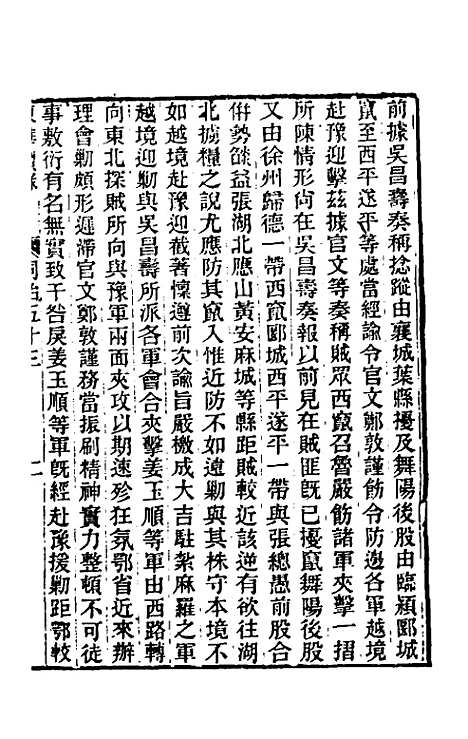 前據吳昌壽奏稱捻蹤由襄城葉縣擾及舞陽後股由臨潁郾城
竄至西平遂平等處當經諭令官文鄭敦謹飭令防邊各軍越境
赴豫迎擊茲據官文等奏稱賊眾西竄召魯嚴飭諸軍夾擊一摺
所陳情形尙在吳昌壽奏報以前見在賊匪旣已擾竄舞陽後股
又由徐州歸德一帶西竄郾城西平遂平一帶與張總愚前股合
倂勢燄益張湖北應山黃安麻城等縣距賊較近該逆有欲往湖
北擄糧之說尤應防其竄入惟近防不如遠勦與其株守本境不
如越境赴豫迎截著懍遵前次諭旨嚴檄成大吉駐紮麻羅之軍
越境迎勦與吳昌壽所派各軍會合夾擊姜玉順等軍由西路轉
向東北探賊所向與豫軍兩面夾攻以期速殄狂氛鄂省近來辦
理會勦頗形遲滯官文鄭敦謹務當振刷精神實力整頓不可徒
事敷衍有名無實致干咎戾姜玉順等軍旣經赴豫援勦距鄂較
同治五十三